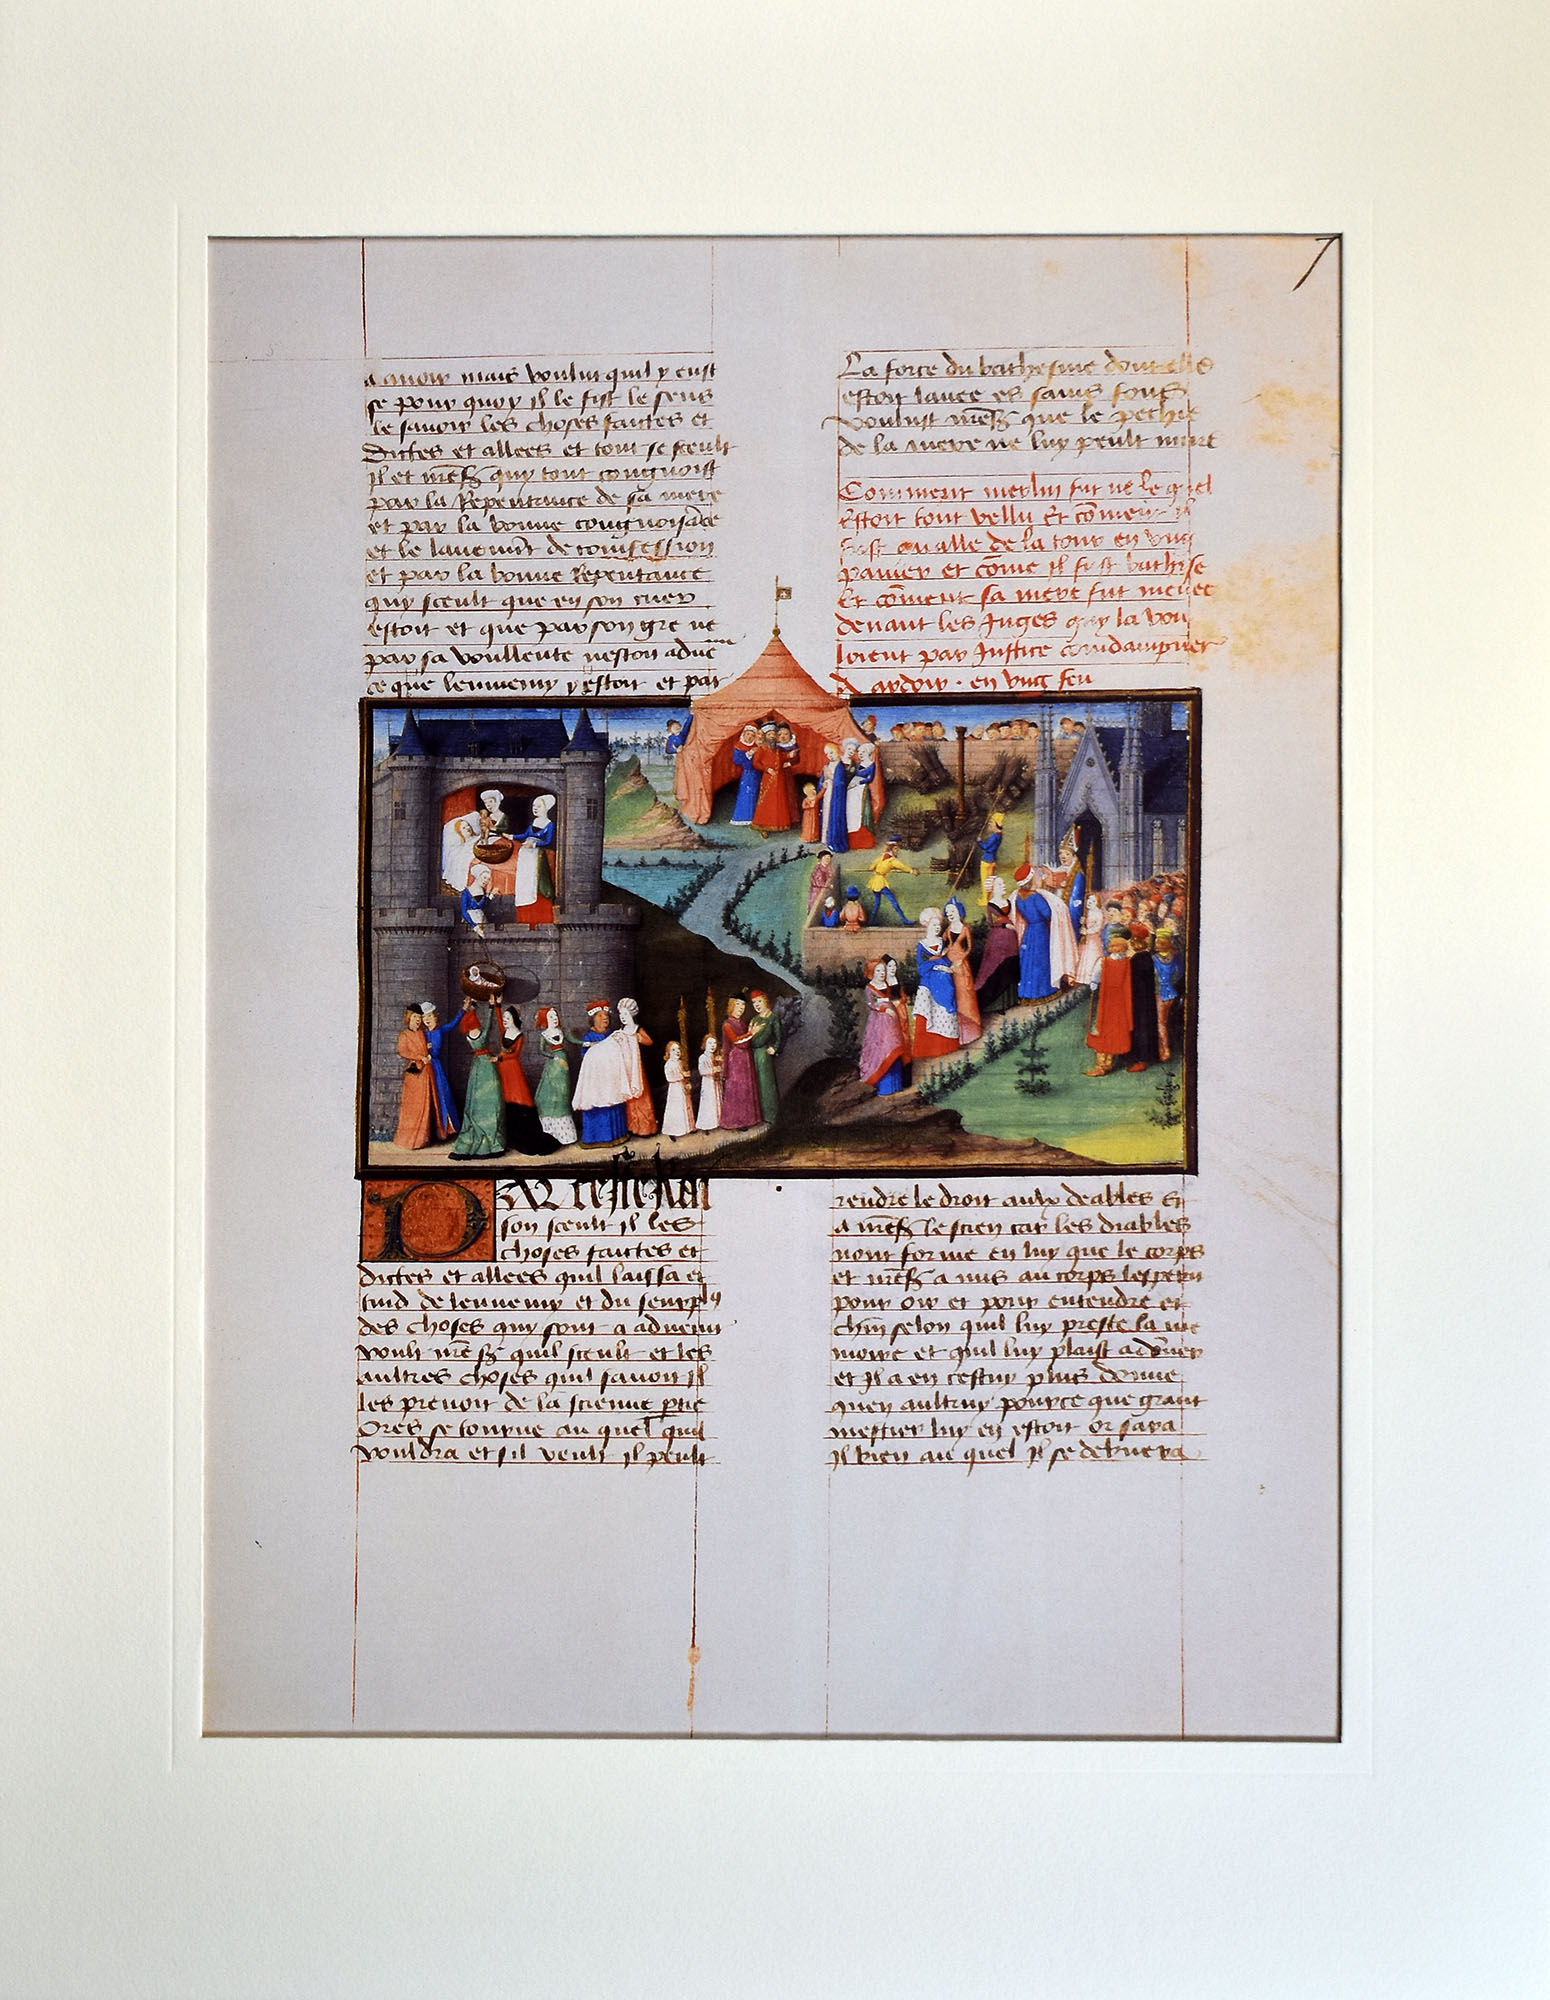 7
a avoir mais voulut quil y eust
se pour quoy il le fist le sens
de savoir les choses faictes et
dictes et allees et tout se sceult
il et nr̄e sgr̄ quy tout congnoist
par la Repentance de sa mere
et par la bonne congnoisāce
et le lavemēt de confession
et par la bonne Repentance
quy sceult que en son cuer
estoit et que par son gre ne
par sa voullente neston aduē
ce que lennemy y estoit et par
Par ceste Rai
son sceult il les
choses faictes et
dictes et allees quil laissa et
tind de lennemy et du seurplq
des choses quy sont a advenir
voult nr̄e sgr̄ quil sceult et les
aultres choses quil savoit il
les prenoit de la science
Ores se tourne au quel quil
vouldra et sil veult il peult
La force du bathesme dont elle
estoit lavee es sains fons
voulust nr̄e sgr̄ que le pechie
de la mere ne luy peult nuire
Comment merlin fut ne le quel
Estoit tout vellu Et cōment il
fust avalle de la tour en ung
panier et cōme il fust bathise
Et cōment sa mere fut menee
devant les Juges quy la vou
loient par Justice condampner
A ardoir . en ung feu
rendre le droit aulx deables Et
a nr̄e sgr̄ le sien car les diables
nont forme en luy que le corps
et nr̄e sgr̄ a mis au corps lesperit
pour oir et pour entendre et
chūn selon quil luy preste la me
moire et quil luy plaist a dōner
et Il a en cestuy pluis donne
quen aultruy pource que grant
mestier luy en estoit or sara
Il bien au quel Il se debuera